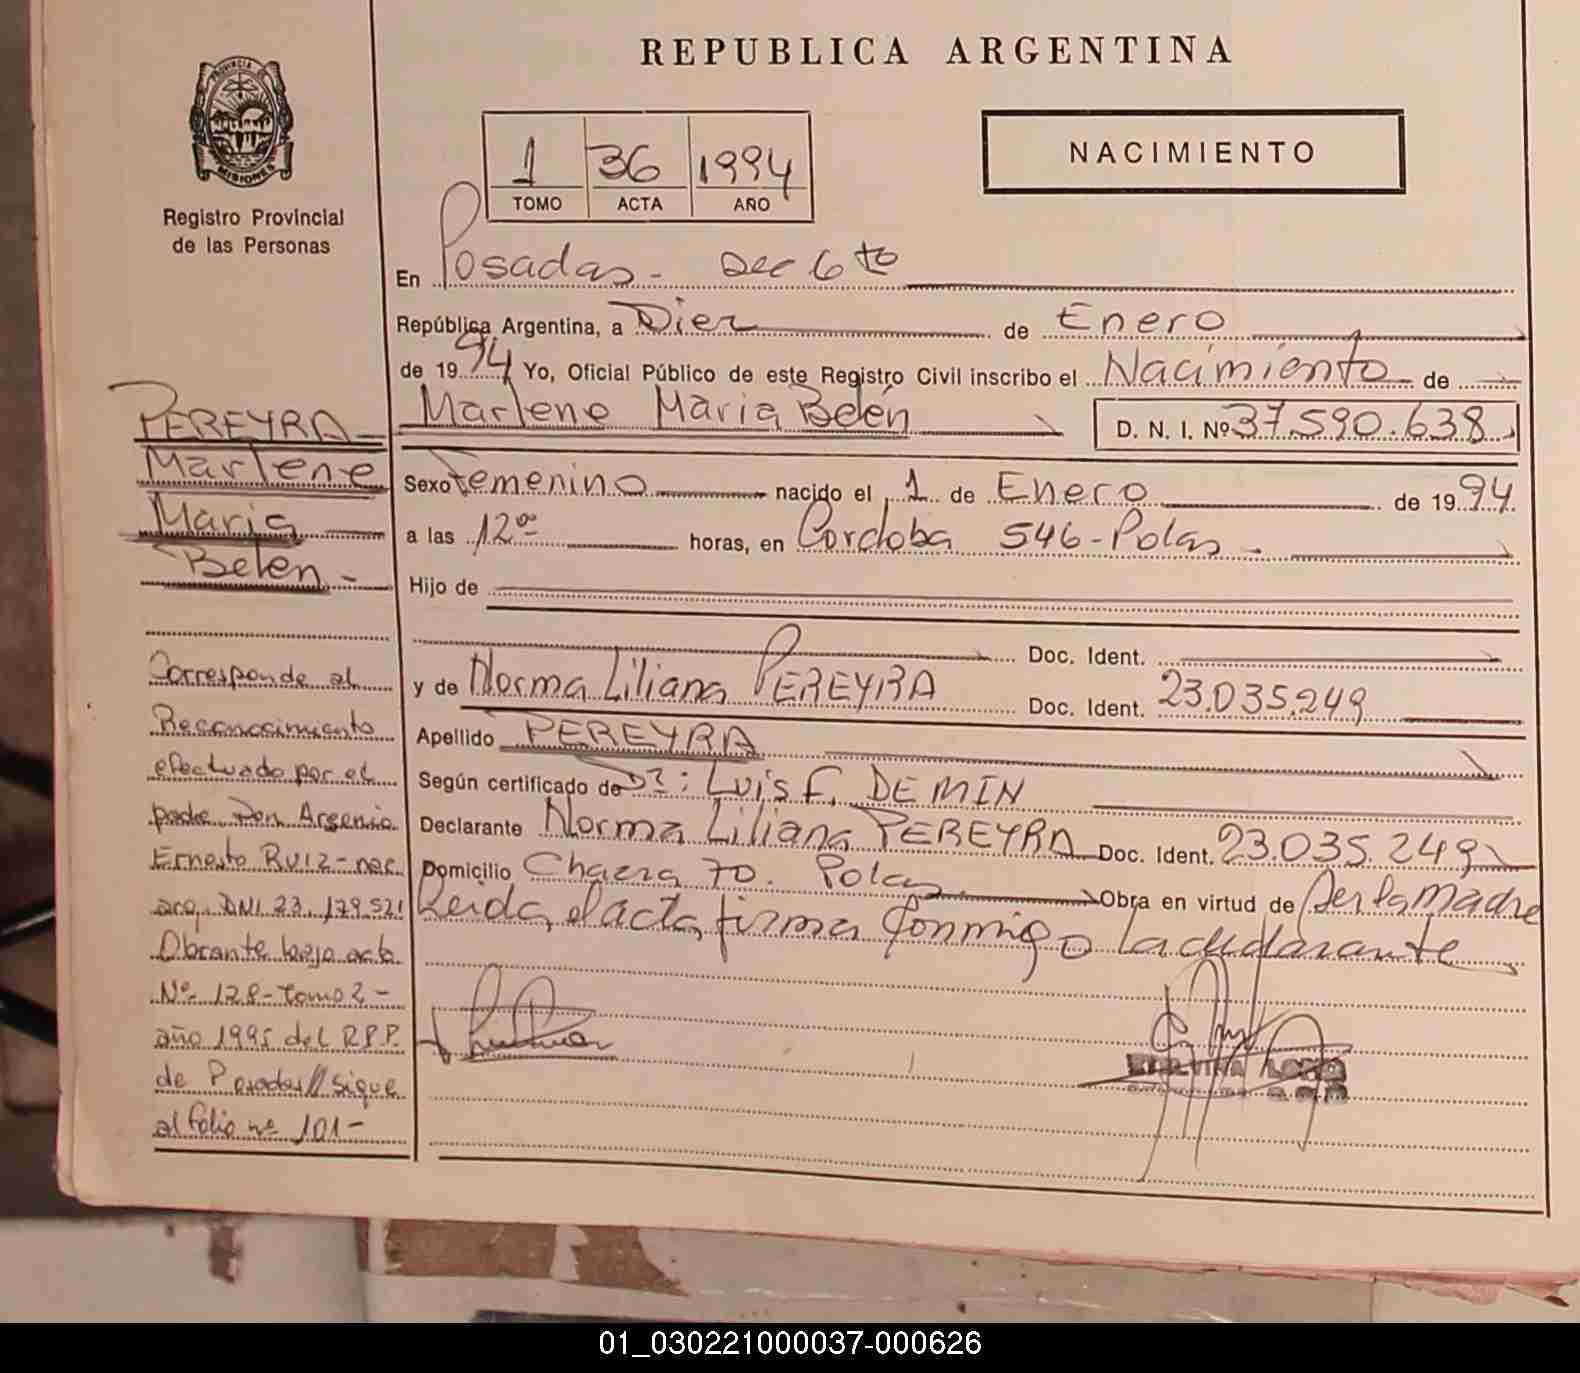 REPUBLICA ARGENTINA
PROVINCIA DE
MISIONES
Registro Provincial
de las Personas
1 36 1994
TOMO ACTA AÑO
NACIMIENTO
En Posadas - Sec 6to
República Argentina, a Diez de Enero
de 1994 Yo, Oficial Público de este Registro Civil inscribo el Nacimiento de
Marlene Maria Belén D. N. I. Nº 37.590.638
Sexo Femenino nacido el 1 de Enero de 1994
a las 12ºº horas, en Cordoba 546 - Pdas -
Hijo de
Doc. Ident.
y de Norma Liliana PEREYRA Doc. Ident. 23.035.249
Apellido PEREYRA
Según certificado de Dr: Luis F. DEMIN
Declarante Norma Liliana PEREYRA Doc. Ident. 23.035.249
Domicilio Chacra 70. Pdas. Obra en virtud de Ser la Madre
Leida el acta, firma conmigo la declarante
PEREYRA
Marlene
Maria
Belén -
Corresponde al
Reconocimiento
efectuado por el
padre Don Argenio
Ernesto RUIZ - nac.
arg. DNI 23.179.521
Obrante bajo acta
Nº 128 - tomo 2 -
año 1995 del R.P.P.
de Posadas // sigue
al folio nº 101 -
01_030221000037-000626